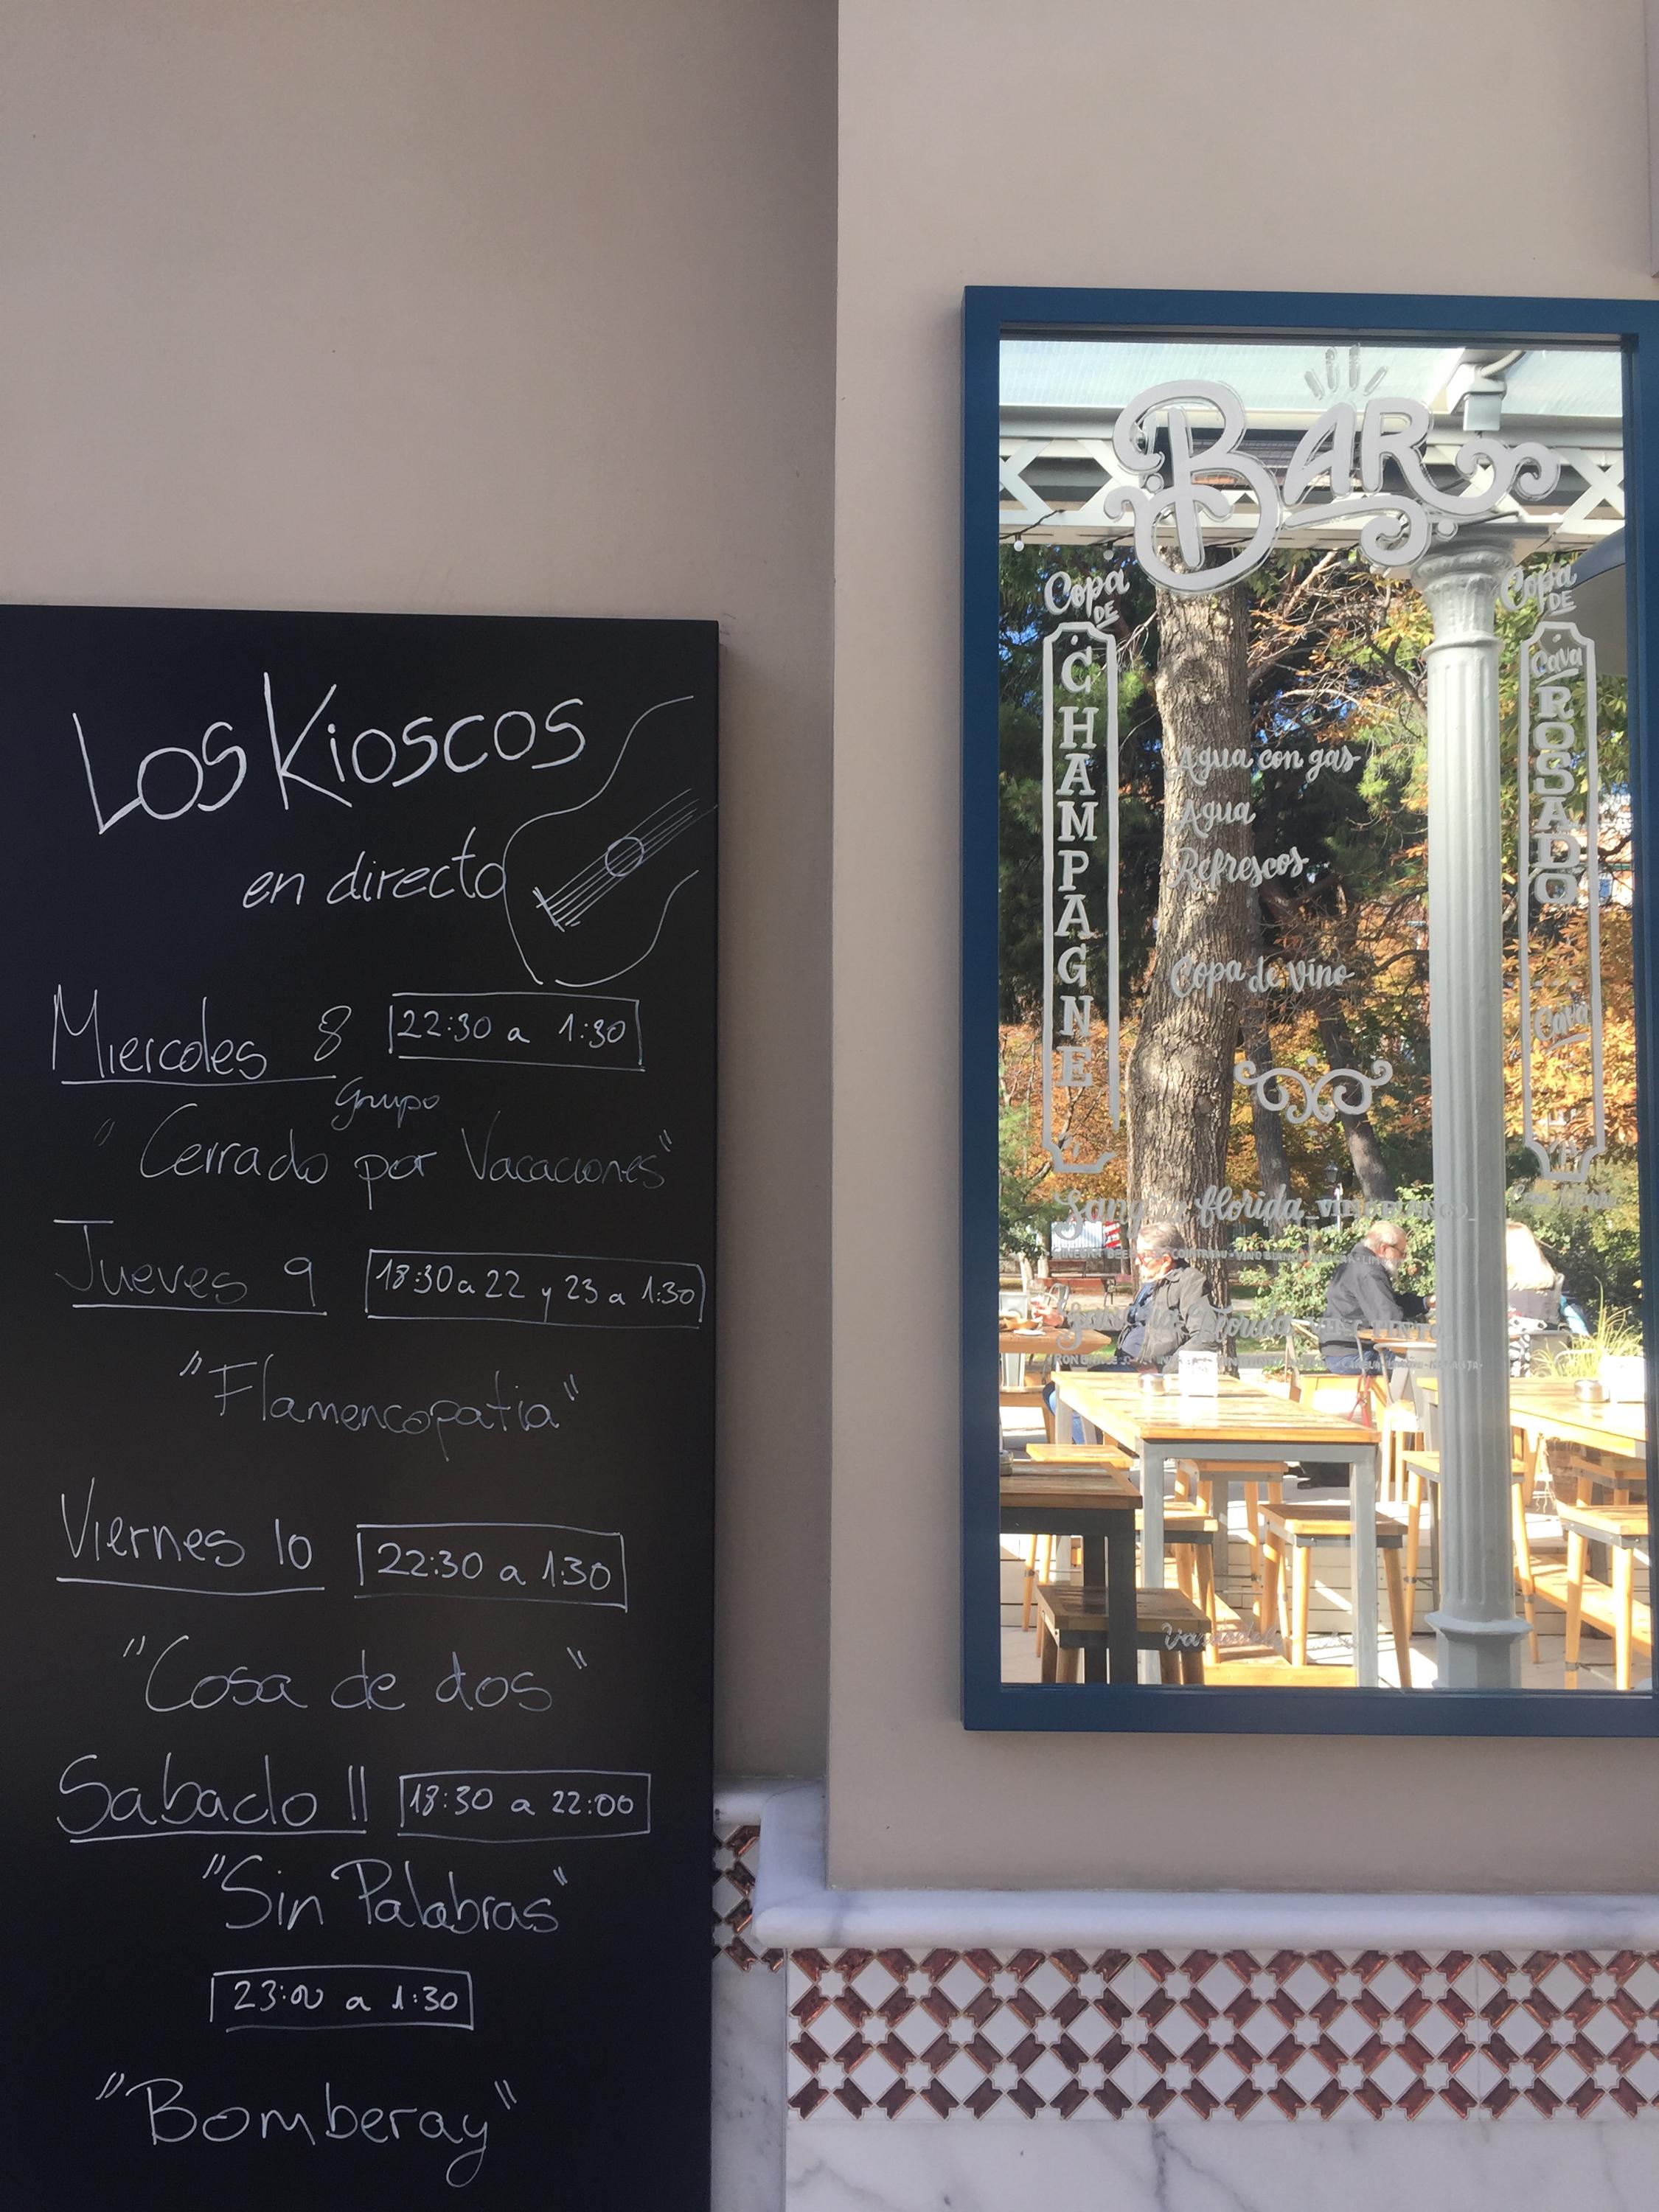 Los Kioscos
en directo
Miercoles 8 22:30 a 1:30
Grupo
"Cerrado por Vacaciones"
Jueves 9 18:30 a 22 y 23 a 1:30
"Flamencopatia"
Viernes 10 22:30 a 1:30
"Cosa de dos"
Sabado 11 18:30 a 22:00
"Sin Palabras"
23:00 a 1:30
"Bomberay"
BAR
Copa
DE
CHAMPAGNE
Agua con gas
Agua
Refrescos
Copa de vino
Copa
DE
Cava
ROSADO
Cava
florida VINO BLANCO